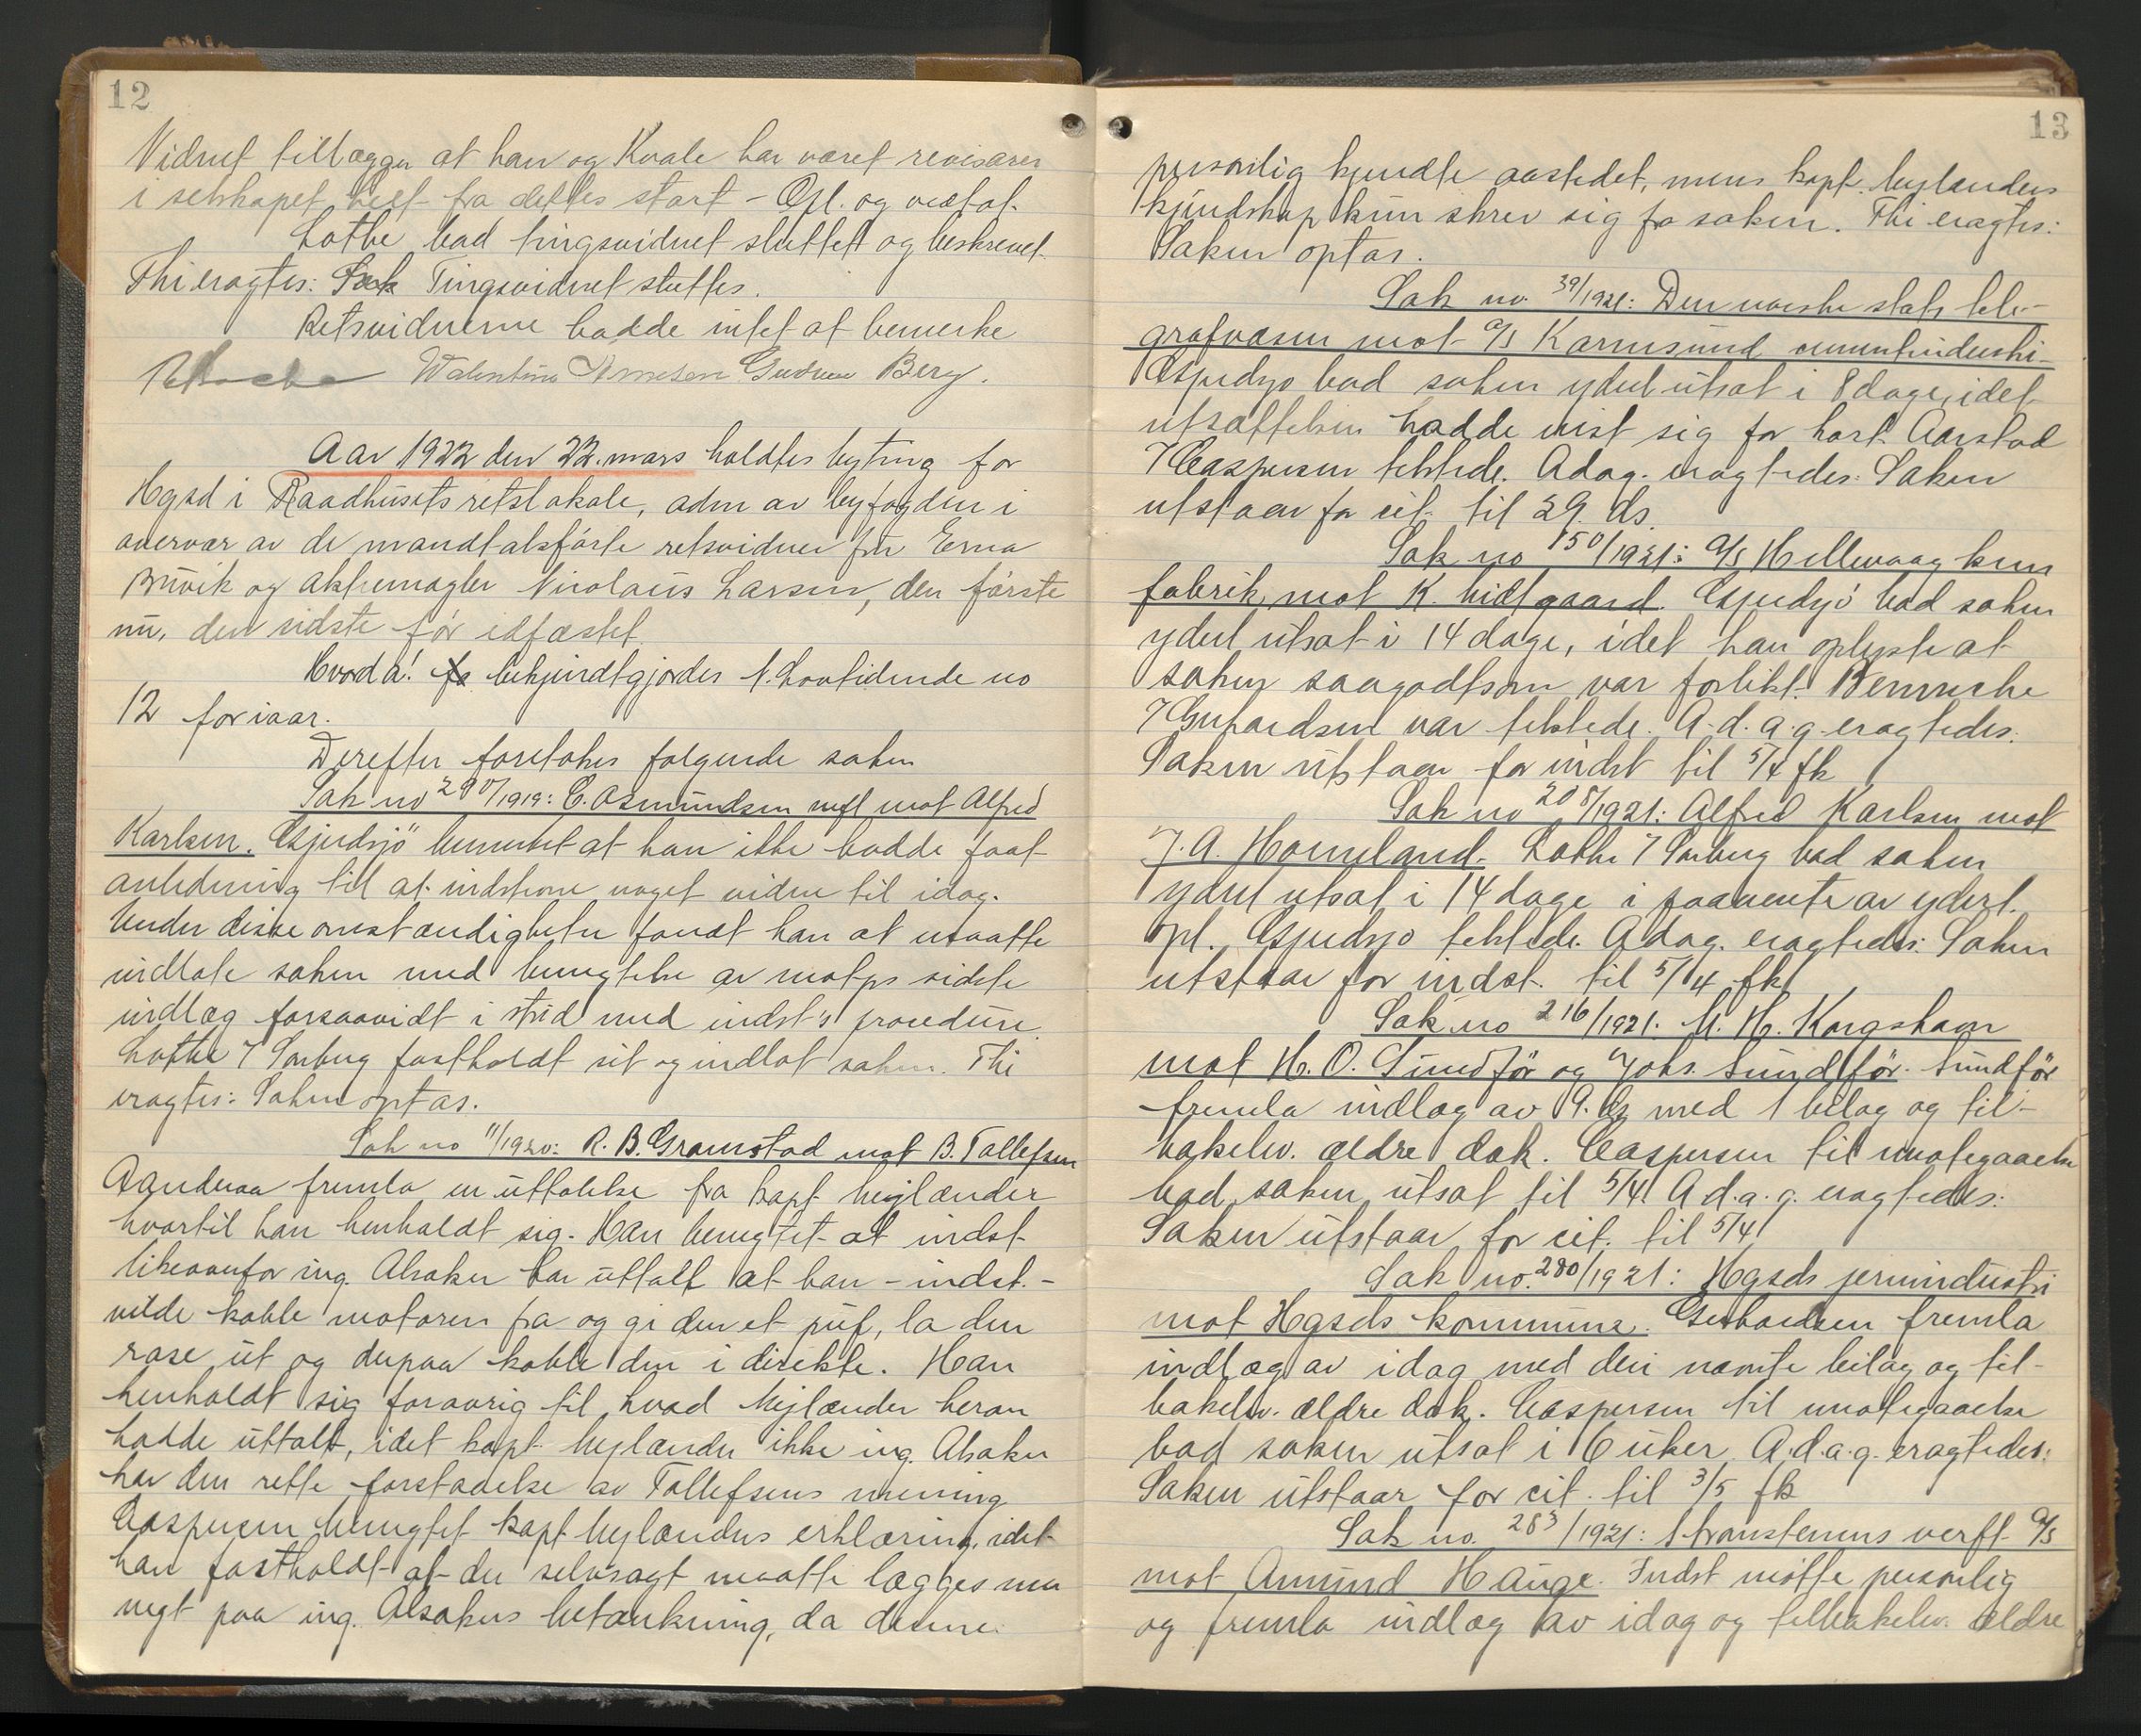 12
Vidnet tillægger at han og Kvale har været revisorer
i selskapet helt fra dettes start - Opl. og vedtat.
Lothe bad tingsvidnet sluttet og beskrevet.
Thi eragtes: Tingsvidnet sluttes.
Retsvidnerne hadde intet at bemerke
Valentine Arnesen Gudrun Berg.
Aar 1922 den 22. mars holdtes byting for
Hgsd i Raadhusets retslokale, adm av byfogden i
overvær av de mandtalsførte retsvidner frk Erna
Buvik og aktiemægler Nicolaus Larsen, den første
nu, den sidste før edfæstet.
Hvorda! bekjendtgjordes N. Lovtidende no
12 for iaar.
Derefter foretokes følgende saker
Sak no 290/1919: C. Asmundsen mfl mot Alfred
Karlsen. Gjerdsjö bemerket at han ikke hadde faat
anledning til at indskrive noget videre til idag.
Under disse omstændigheter fandt han at maatte
indlate saken med benegtelse av motps sidste
indlæg forsaavidt i strid med indst's procedure.
Lothe f Sørberg fastholdt sit og indlot saken. Thi
eragtes: Saken optas.
Sak no 11/1920: R. B. Gramstad mot B. Tollefsen
Aandraa fremla en uttalelse fra kapt. Mejlænder
hvortil han henholdt sig. Han benegtet at indst
likeoverfor ing. Alsaker har uttalt at han - indst. -
vilde koble motoren fra og gi den et puf, la den
rase ut og derpaa koble den i direkte. Han
henholdt sig forøvrig til hvad Mejlænder herom
hadde uttalt, idet kapt. Mejlænder ikke ing. Alsaker
har den rette forstaaelse av Tollefsens mening
Caspersen benegtet kapt Mejlænders erklæring, idet
han fastholdt at der selvsagt maatte lægges mer
vegt paa ing. Alsakers betænkning, da denne
13
personlig kjendte aastedet, mens kapt. Mejlænders
kjendskap kun skrev sig fra saken. Thi eragtes:
Saken optas.
Sak no. 39/1921: Den norske stats tele-
grafvæsen mot A/S Karmsund
Gjerdsjö bad saken yderl. utsat i 8 dage, idet
utsættelsen hadde vist sig for kort. Aarstad
f Caspersen tilstede. Adag. eragtedes: Saken
utstaar for cit. til 29. ds.
Sak no 150/1921: A/S Hillevaag kem
fabrik mot K. Lidtgaard. Gjerdsjö bad saken
yderl utsat i 14 dage, idet han oplyste at
saken saagodtsom var forlikt.
f Gerhardsen var tilstede. A.d.a.g. eragtedes:
Saken utstaar for indst til 5/4 fk
Sak no 208/1921: Alfred Karlsen mot
J. A. Homeland. Lothe f Sørberg bad saken
yderl utsat i 14 dage i paavente av yderl.
opl. Gjerdsjö tilstede. Adag. eragtedes: Saken
utstaar for indst. til 5/4 fk
Sak no 216/1921. M. H. Kongshavn
mot H. O. Sundför og Johs. Sundför. Sundför
fremla indlæg av 9. ds med 1 bilag og til-
bakelev. ældre dok. Caspersen til imøtegaaelse
bad saken utsat til 5/4. A.d.a.g. eragtedes:
Saken utstaar for cit. til 5/4
Sak no. 280/1921: Hgsds jernindustri
mot Hgsds kommune. Gerhardsen fremla
indlæg av idag med deri nævnte bilag og til-
bakelev. ældre dok. Caspersen til imøtegaaelse
bad saken utsat i 6 uker. A.d.a.g. eragtedes:
Saken utstaar for cit. til 3/5 fk
Sak no. 283/1921: Stranstenens verft A/S
mot Amund Hauge. Indst møtte personlig
og fremla indlæg av idag og tilbakelev. ældre